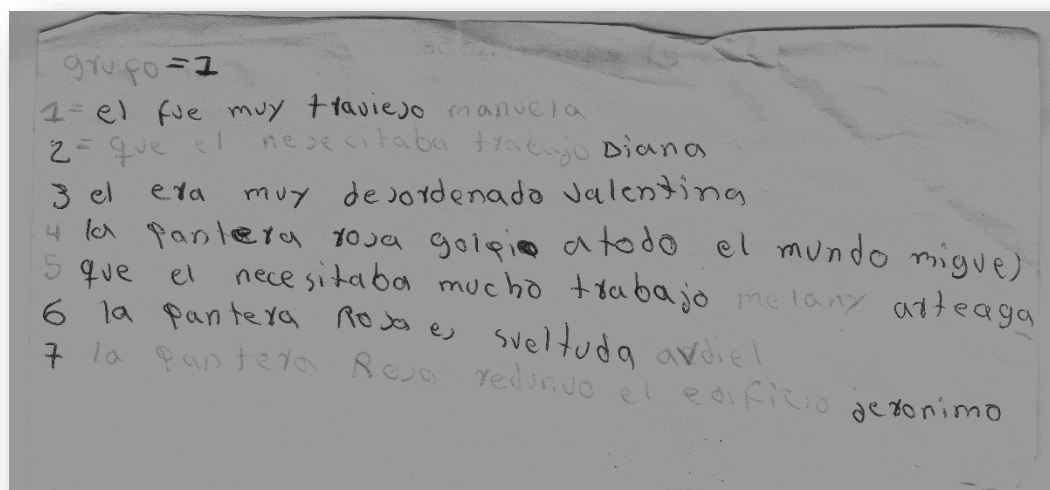 grupo = 1
1 = el fue muy travieso manuela
2 = que el nesecitaba trabajo Diana
3 el era muy desordenado valentina
4 la pantera rosa golpio atodo el mundo miguel
5 que el necesitaba mucho trabajo melany arteaga
6 la pantera Rosa es sveltuda avdiel
7 la pantera Rosa redunvo el edificio jeronimo